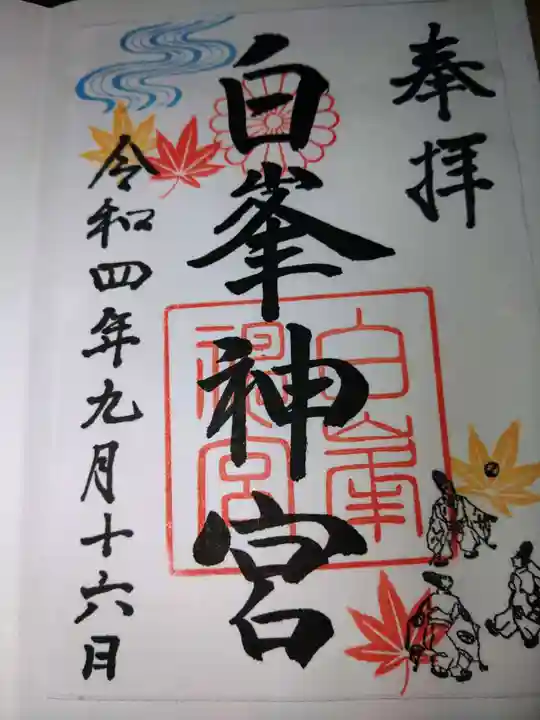 奉拝
白峯神宮
白峯神宮
令和四年九月十六日